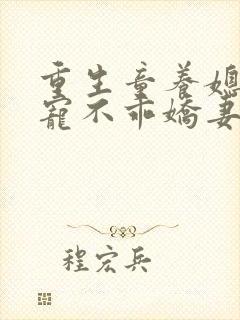 重生童养媳
宠不乖嬌妻
程宏兵